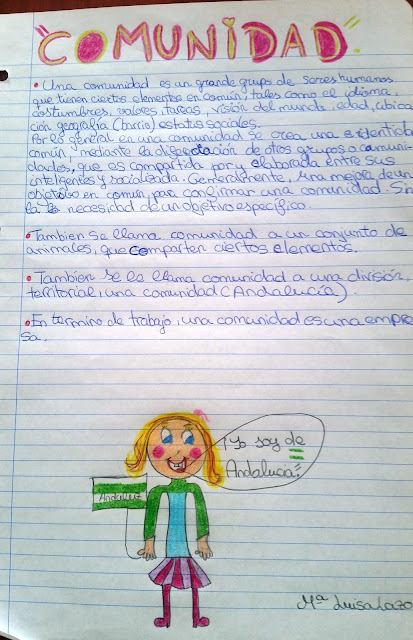 "COMUNIDAD"
• Una comunidad es un grande grupo de seres humanos
que tienen ciertos elementos en común, tales como el idioma,
costumbres, valores, tareas, visión del mundo, edad, ubica
ción geografía (barrio) estatus sociales.
Por lo general en una comunidad se crea una identida
común, mediante la de otros grupos o comuni-
dades, que es compartida por y elaborada entre sus
inteligentes y socializada. Generalmente, una mejora de un
objetivo en común, para confirmar una comunidad sin
la necesidad de un objetivo específico.
• Tambien se llama comunidad a un conjunto de
animales, que comparten ciertos elementos.
• Tambien se le llama comunidad a una división
territorial, una comunidad (Andalucía).
• En termino de trabajo, una comunidad es una empre
sa.
¡Yo soy de
Andalucía!
Andaluz
Mª Luisa Lazo